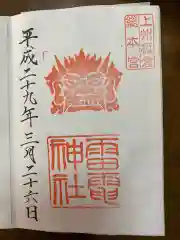 上州板倉
總本宮
雷電
神社
平成二十九年三月二十六日